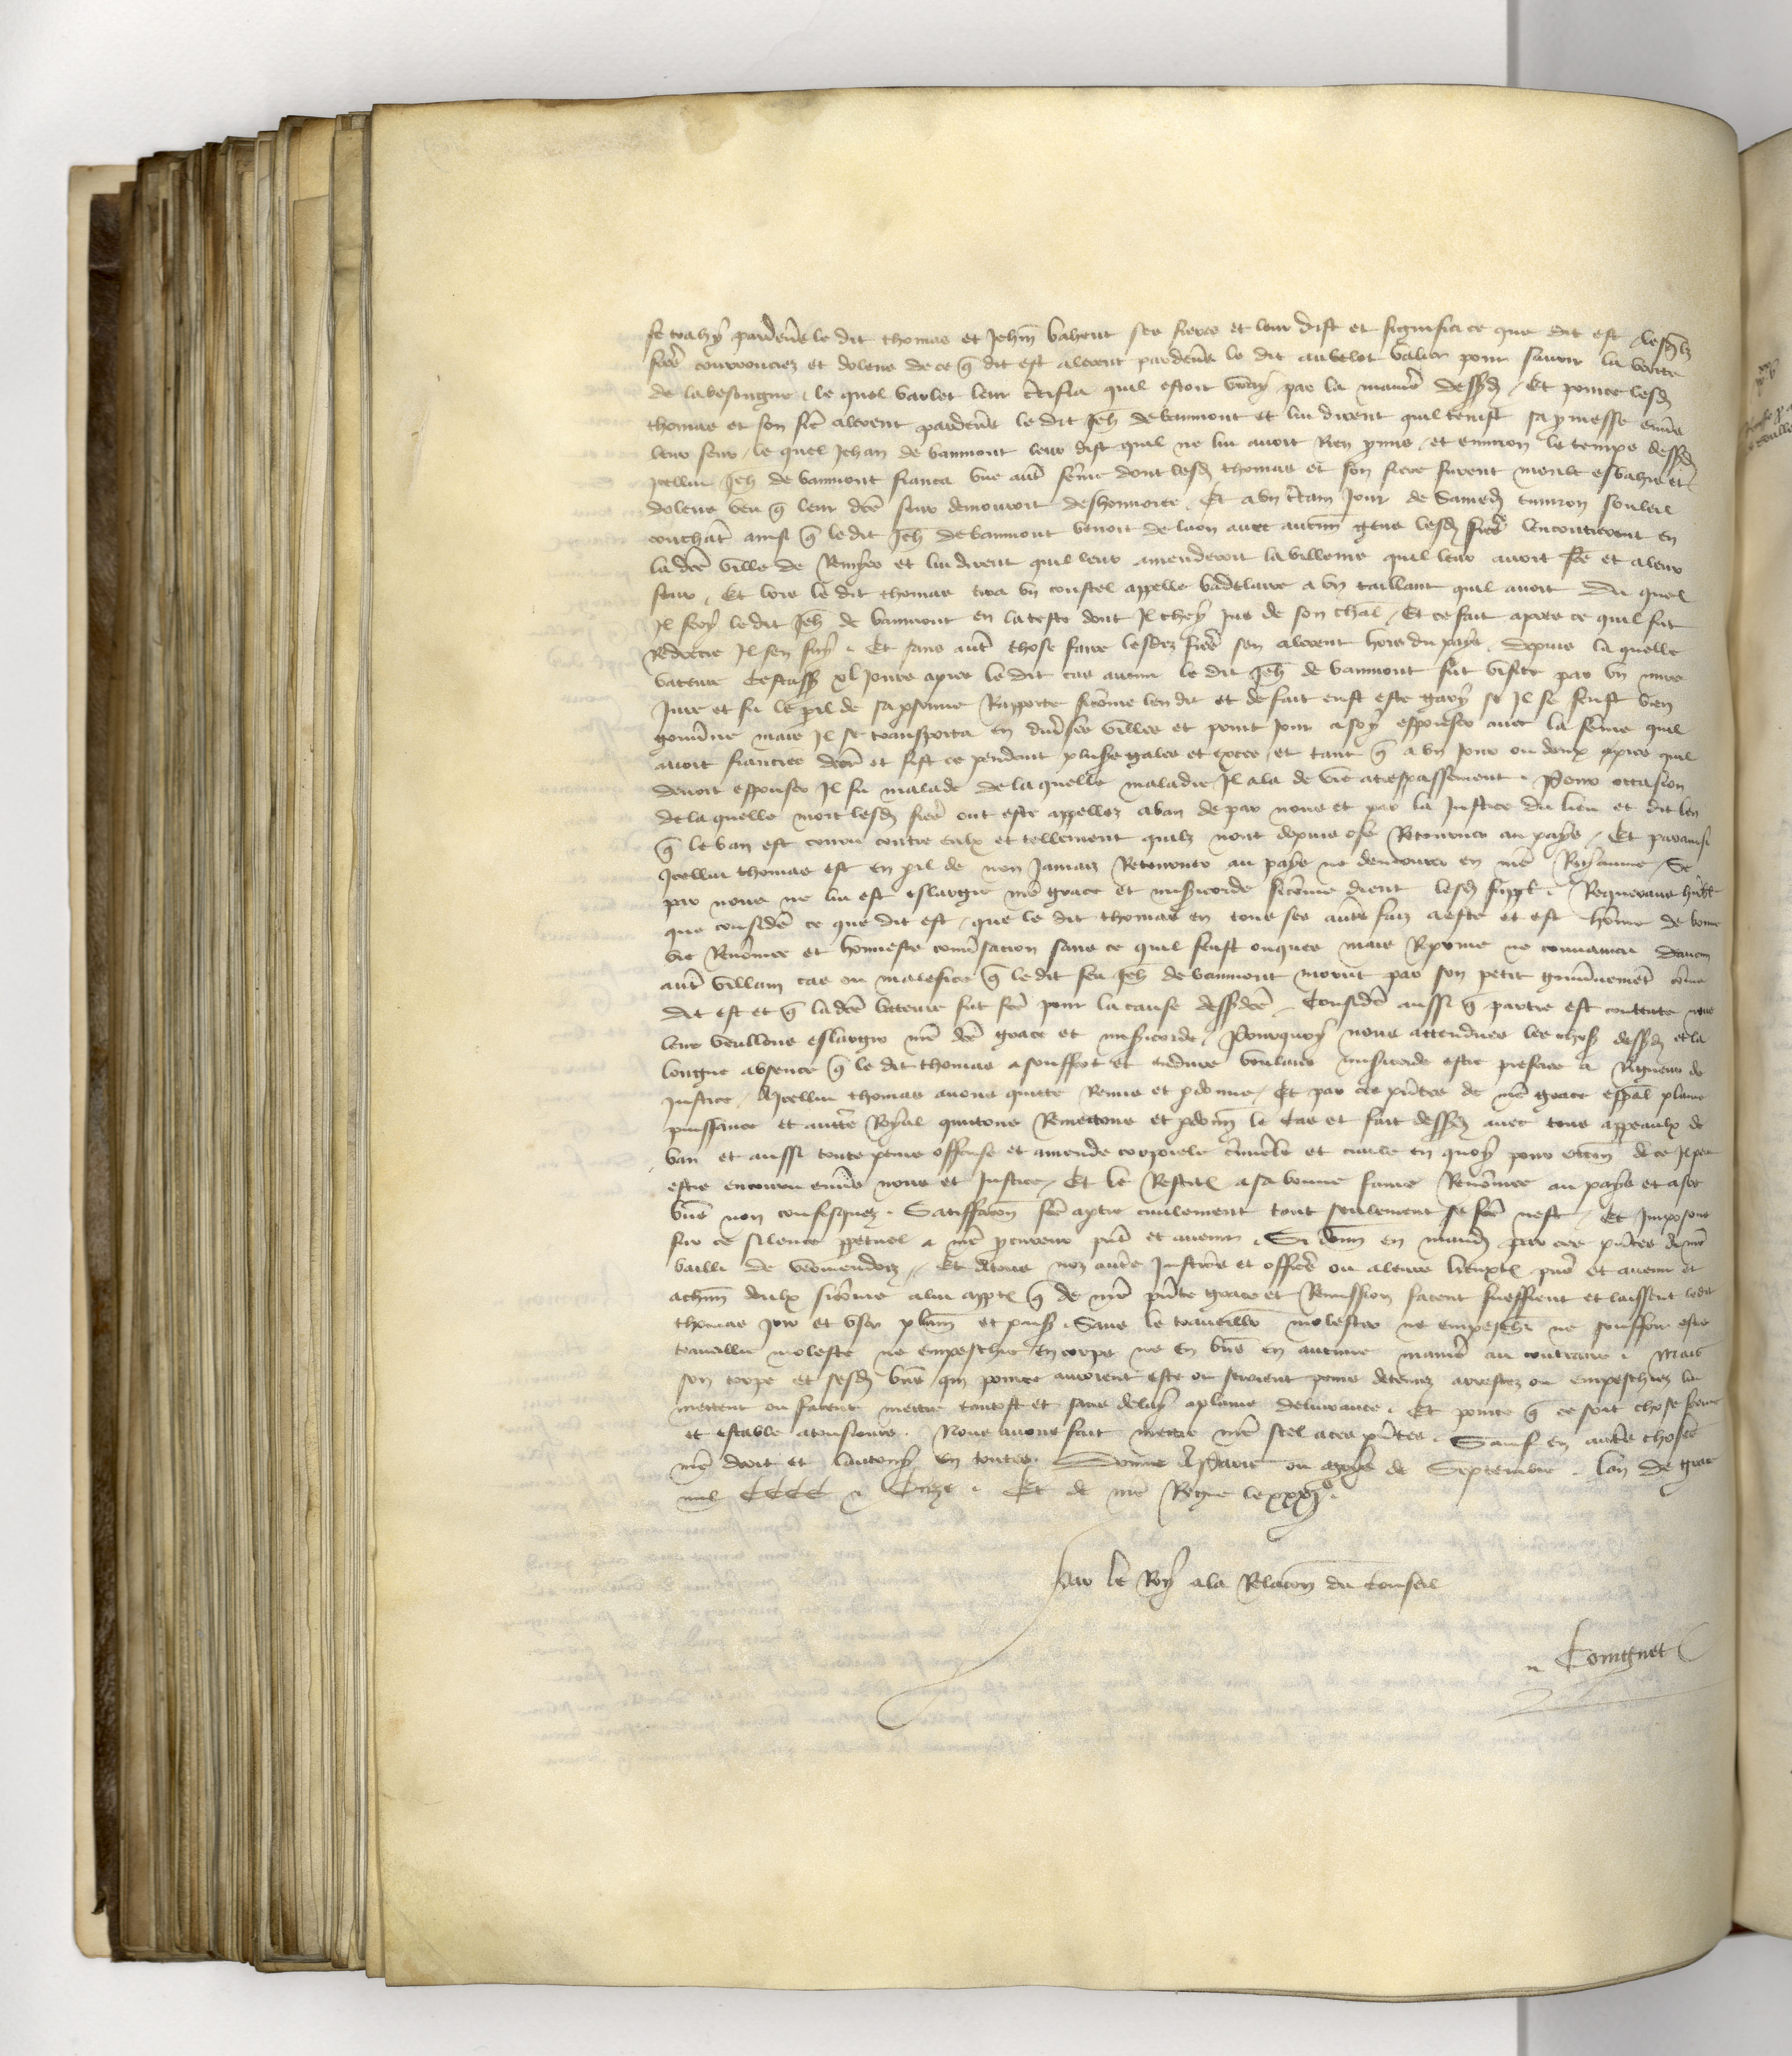 se trahy pardevers le dit thomas et Jehan bahent ses freres et leur dist et signifia ce que dit est lesqlz
freres courrouciez et dolens de ce q dit est alerent pardevers le dit aubelet varlet pour savoir la verite
de la besongne le quel varlet leur certifia quil estoit vray par la maniere dessusd Et pource lesd
thomas et son frere alerent pardevers le dit Jeh de vaumont et lui dirent quil tenist sa promesse envers
leur seur le quel Jehan de vaumont leur dist quil ne lui avoit Rien promis et environ le temps dessusd
Jcellui Jeh de vaumont fianca une autre femme dont lesd thomas et son frere furent moult esbahiz et
dolens veu q leur dicte seur demouroit deshonnoree Et a un certain Jour de Samedi environ souleil
couchant ainsi q le dit Jeh de vaumont venoit de laon avec aucuns gens lesd freres lencontrerent en
la dicte ville de et lui dirent quil leur amenderoit la villenie quil leur avoit fce et a leur
seur Et lors le dit thomas tira un coustel appelle badelaire a un taillant quil avoit Du quel
Jl fery le dit Jeh de vaumont en la teste dont Jl chey jus de son chal Et ce fait apres ce quil fut
Redrecie Jl sen fuy Et sans autre chose faire lesdiz freres sen alerent hors du pays depuis la quelle
bateure Cestass xl Jours apres le dit cas avenu le dit Jeh de vaumont fut visite par un mire
Jure et fu le peril de sa personne Rapporte sicomme len dit et de fait eust este gary se Jl se feust bien
gouverne mais Jl se transporta en diverses villes et print Jour a soy espouser avec la femme quil
avoit fiancee derr et fist ce pendent plusrs galas et exces et tant q a un Jour ou deux apres quil
devoit espouser Jl fu malade de la quelle maladie Jl ala de vie a trespassement Pour occasion
de la quelle mort lesd freres ont este appellez a ban de par nous et par la Justice du lieu et dit len
q le ban est couru contre eulx et tellement quilz nont depuis ose Retourner au pays Et par ainsi
Jcellui thomas est en peril de non Jamais Retourner au pays ne demourer en nre Royaume Se
par nous ne lui est eslargie nre grace et misericorde sicomme dient lesd suppl Requerans humblt
que consideré ce que dit est que le dit thomas en tous ses autres faiz a este et est homme de bonne
vie Renommee et honneste conversacion sans ce quil feust onques mais Reprins ne convaincu daucun
autre villain cas ou malefice q le dit feu Jeh de vaumont morut par son petit gouvernement come
dit est et q la dicte bateure fut fce pour la cause dessusdicte Consideré aussi q partie est contente nous
leur veullons eslargir nre dce grace et misericorde Pourquoy nous attendues les choses dessusd et la
longue absence q le dit thomas a souffert et endure voulans misericorde estre preferee a Rigueur de
justice A Jcellui thomas avons quitte Remis et pardonne Et par ces presentes de nre grace especial plaine
puissance et auctorite Royal quittons Remettons et pardonnons le Cas et fait dessusd avec tous appeaulx de
ban et aussi toute peine offense et amende corporele criminelle et civile en quoy pour occasion de ce Jl peut
estre encouru envers nous et Justice Et le Restituons a sa bonne fame Renommee au pays et a ses
biens non confisquez Satisfaction fce a partie civilement tant seulement se fce nest Et Jmposons
sur ce silence perpetuel a nre procureur present et avenir Si donnons en mandement par ces presentes au
bailli de vermendois Et a tous noz autres Justiciers et officiers ou a leurs lieuxten presens et avenir et
a chascun deulx sicomme a lui appartendra q de nre presente grace et Remission facent sueffrent et laissent ledit
thomas joir et user plainement et paisiblement Sans le traveiller molester ne empeschier ne souffrir estre
travaillie moleste ne empeschie en corps ne en biens en aucune maniere au contraire Mais
son corps et sesd biens qui pource auroient este ou seroient prins detenuz arrestez ou empeschiez lui
mettent ou facent mettre tantost et sans delay a plaine delivrance Et pource q ce soit chose ferme
et estable a tousiours Nous avons fait mettre nre scel a ces presentes Sauf en autres choses
nre droit et lautruy en toutes Donne a Paris ou moys de Septembre lan de grace
mil CCCC et Onze Et de nre Regne le xxxje

Par le Roy a la Relacion du Conseil
Coingnet